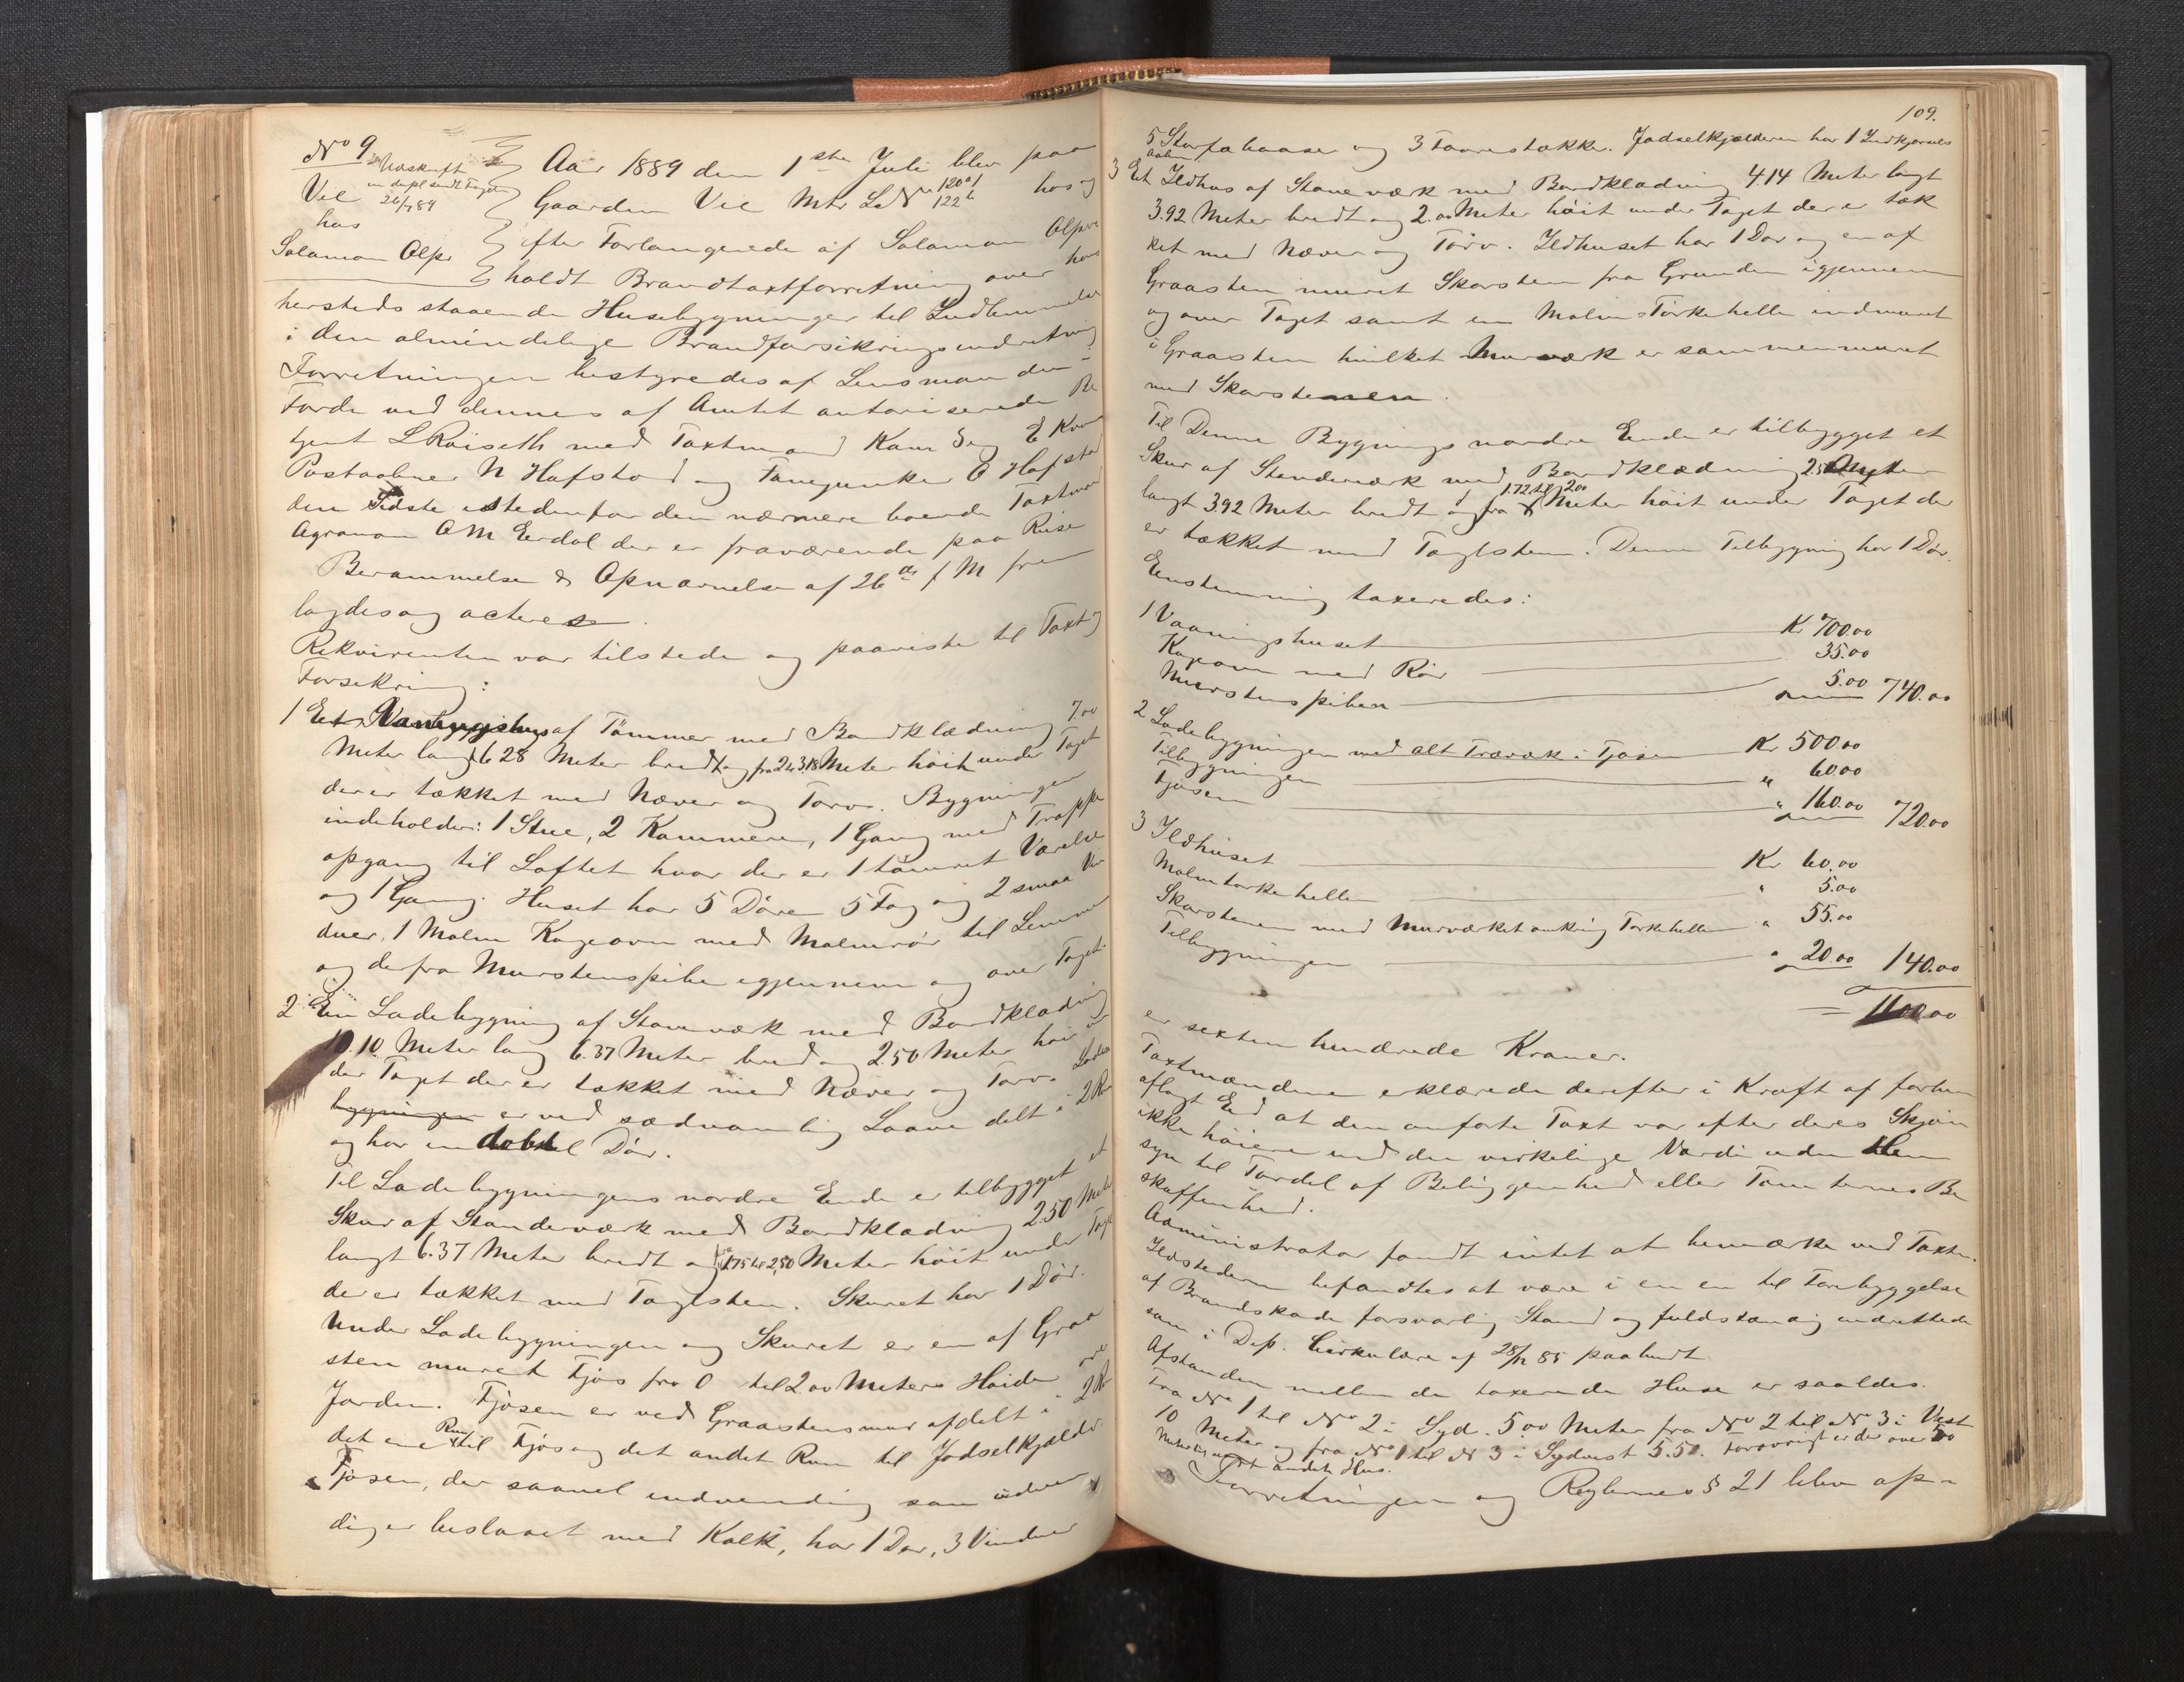 No 9
Udskrift
en dupl sendt Fogden
26/7 89
Vie
hos
Salamon Olsen
Aar 1889 den 1ste Juli blev paa
Gaarden Vie Mtr L No 120a1 122b hos og
efter Forlangende af Salamon Olsen
holdt Brandtaxtforretning over hans
hersteds staaende Husebygninger til Indlemmelse
i den almindelige Brandforsikringsindretning
Forretningen bestyredes af Lensmanden i
Førde ved dennes af Amtet autoriserede Be
tjent L Røiseth med Taxtmænd
Postaabner N Hafstad og Fanejunker E Hafstad
den Sidste istedenfor den nærmere boende Taxtmand
Agronom A M Eerdal der er fraværende paa Reise
Berammelse & Opnævnelse af 26de f M frem
lagdes og acteres
Rekvirenten var tilstede og paaviste til Taxt og
Forsekring:
1 Et Vaaningshus af Tømmer med Bordklædning 7.00
Meter langt 6 28 Meter bredt og fra 2 til 3.18 Meter høit under Taget
der er tækket med Næver og Torv. Bygningen
indeholder: 1 Stue, 2 Kammere, 1 Gang med Trappe
opgang til Loftet hvor der er 1 tømret Værelse
og 1 Gang. Huset har 5 Døre 5 Fag og 2 smaa Vin
duer, 1 Malm Kageovn med Malmrør til Lemmen
og derfra Murstenspibe igjennem og over Taget.
2 En Ladebygning af Stavværk med Bordklædning
10.10 Meter lang 6.37 Meter bred og 2.50 Meter høi un
der Taget der er tækket med Næver og Torv. Lade
bygningen er ved sædvanlig Laave delt i 2 Rum
og har en dobbel Dør.
Til Ladebygningens nordre Ende er tilbygget et
Skur af Standerværk med Bordklædning 2.50 Meter
langt 6.37 Meter bredt og fra 1.75 til 2,50 Meter høit under Taget
der er tækket med Taglsten. Skuret har 1 Dør.
Under Ladebygningen og Skuret er en af Graa
sten muret Fjøs fra 0 til 2 00 Meters Høide over
Jorden. Fjøsen er ved Graastensmur afdelt i 2 Rum
det ene Rum til Fjøs og det andet Rum til Jødselkjælder.
Fjøsen, der saavel indvendig som udven
dig er beslaaet med Kalk, har 1 Dør, 3 Vinduer
109.
5 Storfæbaase og 3 Faarestækker. Jødselkjælderen har 1 Indkjørsels
aabn
3 Et Ildhus af Stavværk med Bordklædning 4.14 Meter langt
3.92 Meter bredt og 2.00 Meter høit under Taget der er tæk
ket med Næver og Torv. Ildhuset har 1 Dør og en af
Graasten muret Skorsten fra Grunden igjennem
og over Taget samt en Malm=Tørkehelle indmuret
i Graasten hvilket Murværk er sammenmuret
med Skorstenen.
Til Denne Bygnings nordre Ende er tilbygget et
Skur af Standerværk med Bordklædning 2.50 Meter
langt 3.92 Meter bredt og fra 1.72 til 2.00 Meter høit under Taget der
er tækket med Taglsten. Denne Tilbygning har 1 Dør.
Eenstemmig taxeredes:
1 Vaaningshuset Kr 700.00
Kageovn med Rør 35.00
Murstenspiben 5.00 740.00
2 Ladebygningen med alt Træværk i Fjøsen Kr 500.00
Tilbygningen " 60.00
Fjøsen " 160.00 720.00
3 Ildhuset Kr 60.00
Malmtørkehellen " 5.00
Skorstenen med Murværket omkring Tørkehellen " 55.00
Tilbygningen " 20.00 140.00
= 1600.00
er sexten hundrede Kroner.
Taxtmændene erklærede derefter i Kraft af forhen
aflagt Eed at den anførte Taxt var efter deres Skjøn
ikke høiere end den virkelige Værdi uden Hen
syn til Fordel af Beliggenhed eller Tomternes Be
skaffenhed.
Administrator fandt intet at bemærke ved Taxten.
Ildstederne befandtes at være i en en til Forebyggelse
af Brandskade forsvarlig Stand og fuldstændig indrettede
som i Dep. Cirkulære af 28/12 85 paabudt
Afstanden mellem de taxerede Huse er saaledes.
Fra No 1 til No 2 i Syd. 5.00 Meter fra No 2 til No 3 i Vest
10 Meter og fra No 1 til N 3 i Sydvest 5.50. Forøvrigt er der over 50
Meter til andets Hus.
Forretningen og Reglernes § 21 blev op=